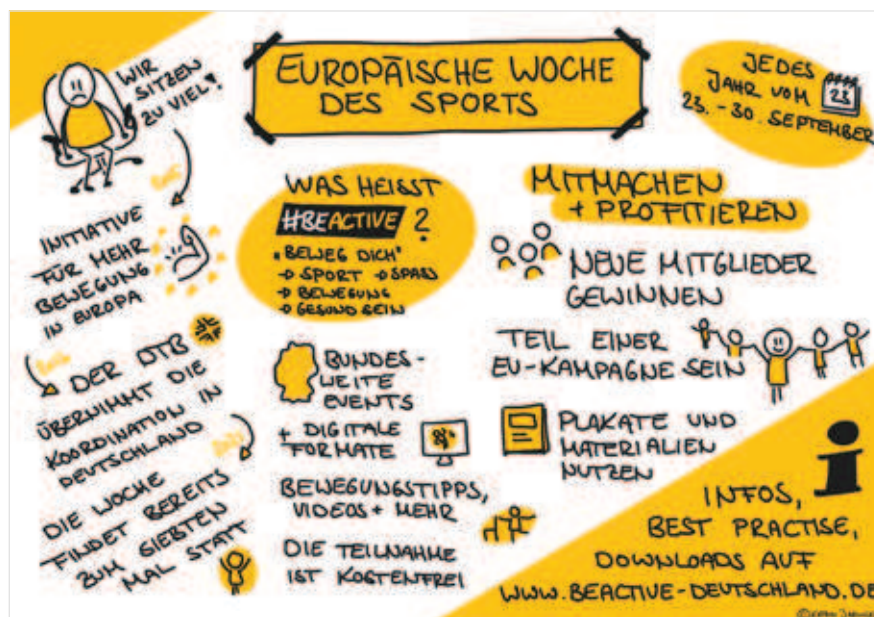 EUROPÄISCHE WOCHE
DES SPORTS
JEDES
JAHR VOM
23
23. - 30. SEPTEMBER
WIR
SITZEN
ZU VIEL!
INITIATIVE
FÜR MEHR
BEWEGUNG
IN EUROPA
DER DTB
ÜBERNIMMT DIE
KOORDINATION IN
DEUTSCHLAND
DIE WOCHE
FINDET BEREITS
ZUM SIEBTEN
MAL STATT
WAS HEISST
#BEACTIVE ?
„BEWEG DICH"
→ SPORT → SPASS
→ BEWEGUNG
→ GESUND SEIN
BUNDES-
WEITE
EVENTS
+ DIGITALE
FORMATE
BEWEGUNGSTIPPS,
VIDEOS + MEHR
DIE TEILNAHME
IST KOSTENFREI
MITMACHEN
+ PROFITIEREN
NEUE MITGLIEDER
GEWINNEN
TEIL EINER
EU-KAMPAGNE SEIN
PLAKATE UND
MATERIALIEN
NUTZEN
i
INFOS,
BEST PRACTISE,
DOWNLOADS AUF
WWW.BEACTIVE-DEUTSCHLAND.DE